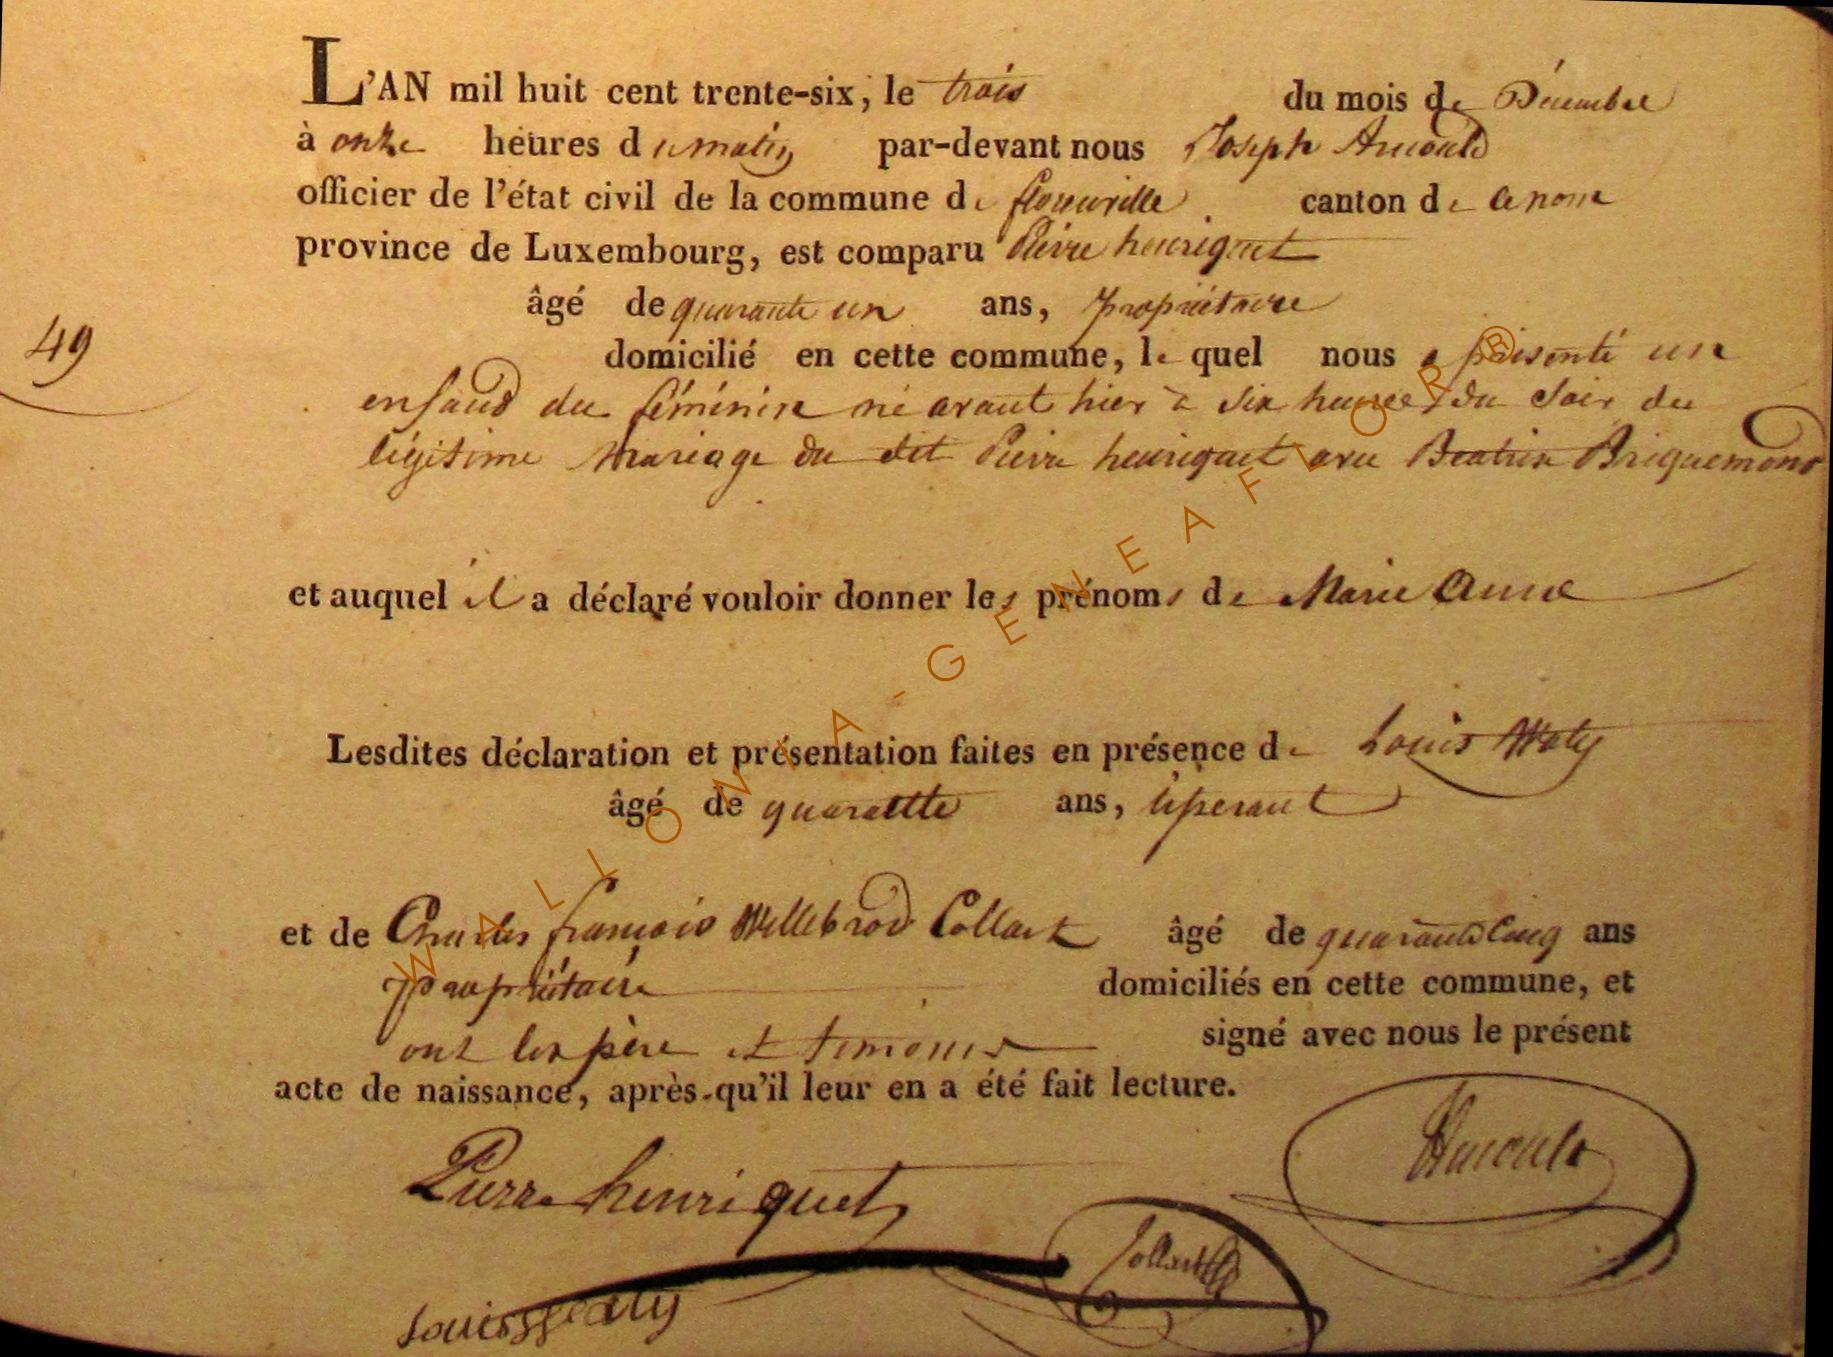 L'AN mil huit cent trente-six, le trois du mois de Décembre
à onze heures du matin par-devant nous Joseph Arnould
officier de l'état civil de la commune de florenville canton de ce nom
province de Luxembourg, est comparu Pierre henriquet
âgé de quarante un ans, propriétaire
domicilié en cette commune, le quel nous a présenté un
49
enfand du féminin né avant hier à six heures du soir du
légitime mariage du dit Pierre henriquet avec Beatrix Briquemond
et auquel il a déclaré vouloir donner les prénoms de Marie Anne
Lesdites déclaration et présentation faites en présence de Louis Waty
âgé de quarante ans, tisserant
et de Charles francois Willebrod Collart âgé de quarante cinq ans
propriétaire domiciliés en cette commune, et
ont les père et temoins signé avec nous le présent
acte de naissance, après qu'il leur en a été fait lecture.
Pierre henriquet Arnould
Collart
Louis Waty
WALLONIA-GENEAFLOR®